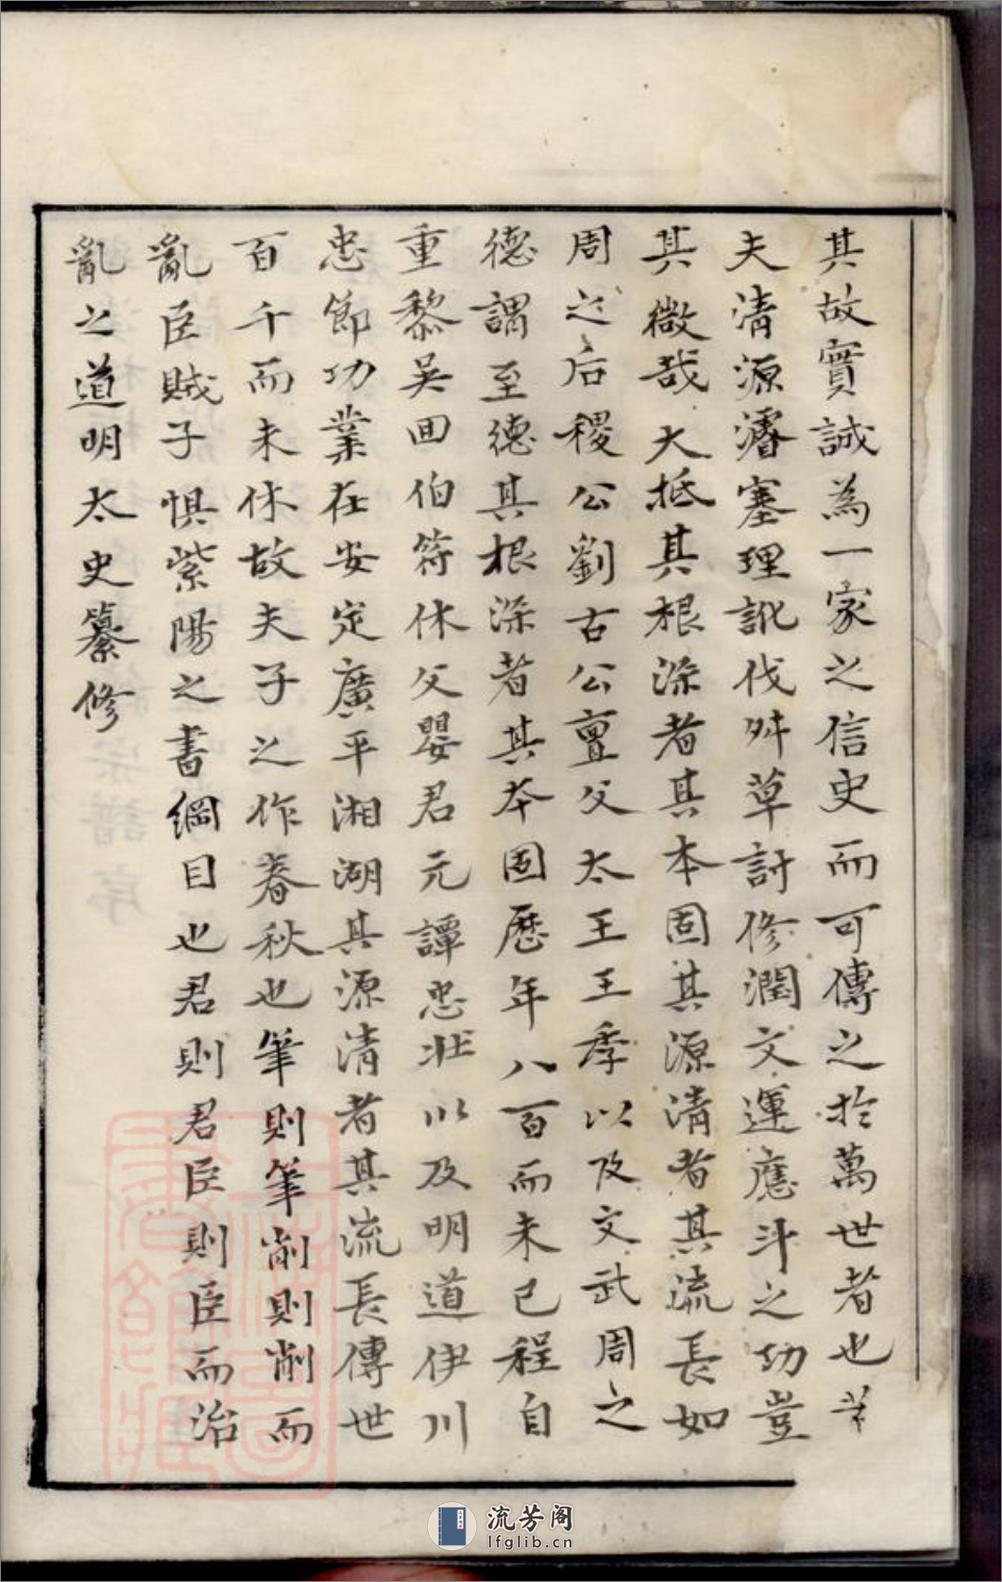 其故實誠為一家之信史而可傳之於萬世者也
夫清源濬塞理訛伐舛草討修潤文運應斗之功豈
其微哉大抵其根深者其本固其源清者其流長如
周之后稷公劉古公亶父太王王季以及文武周之
德謂至德其根深者其本固歷年八百而未已程自
重黎吴回伯符休父嬰君元譚忠壯以及明道伊川
忠節功業在安定廣平湘湖其源清者其流長傳世
百千而未休故夫子之作春秋也筆則筆削則削而
亂臣賊子惧紫陽之書綱目也君則君臣則臣而治
亂之道明太史纂修
流芳阁
lfglib.cn